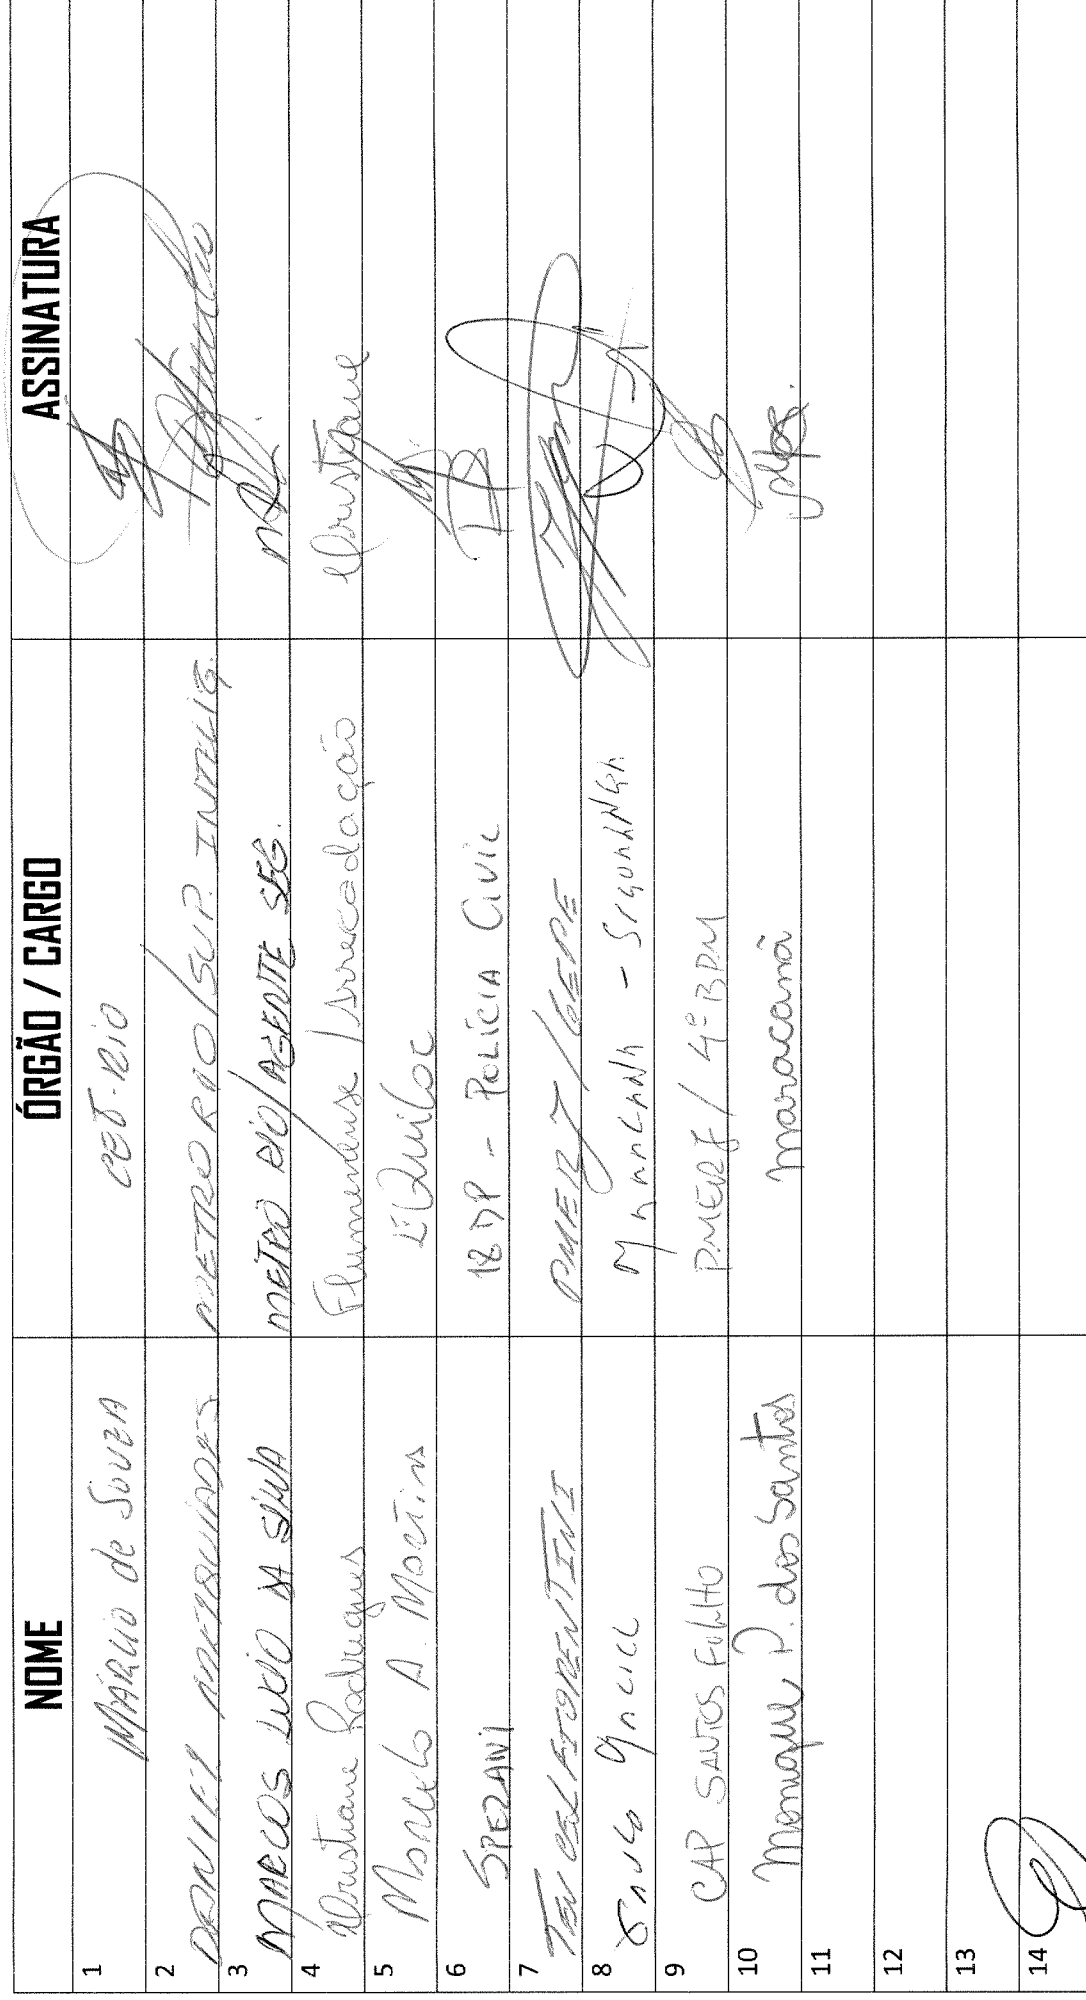 NOME ÓRGÃO / CARGO ASSINATURA
1 MÁRCIO de SOUZA CET-RIO
2 DANIEL METRO RIO/SUP. INTELIG.
3 MARCOS LUCIO DA SILVA METRO RIO/AGENTE SEG.
4 Cristiane Rodrigues Fluminense/Arrecadação Cristiane
5 Marcelo A. Martins EQuiloc
6 SPEZANI 18 DP - POLÍCIA CIVIL
7 TEN CEL FIORENTINI PMERJ/GEPE
8 MARACANA - SEGURANÇA
9 CAP SANTOS FILHO PMERJ / 4º BPM
10 Monique P. dos Santos maracanã
11
12
13
14